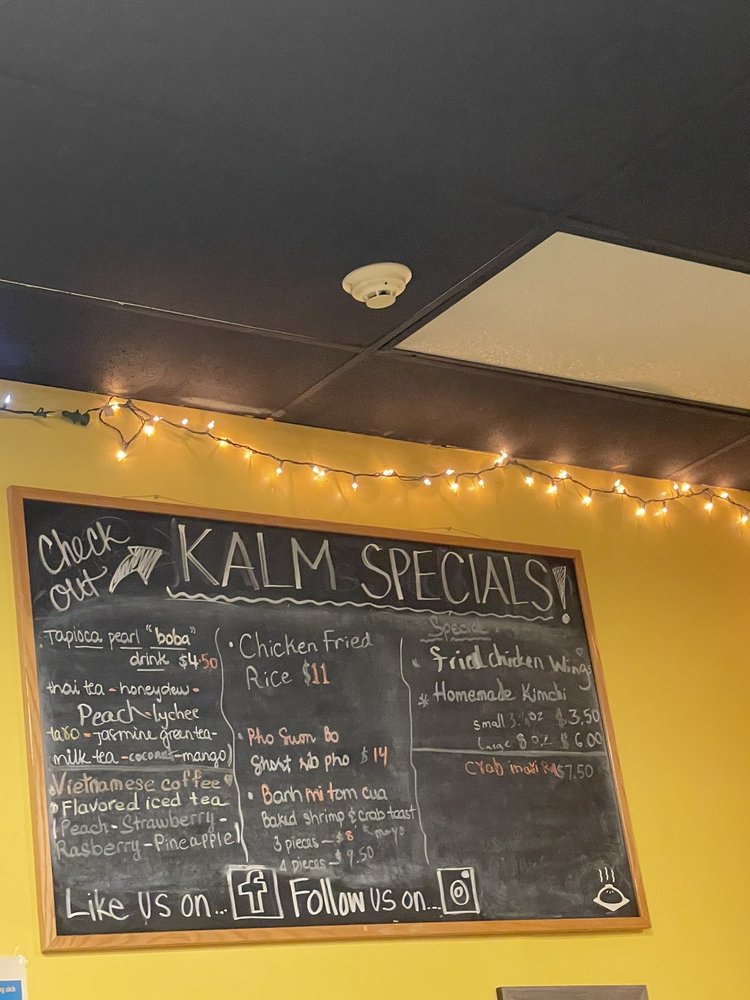 Check
out
KALM SPECIALS!
Tapioca pearl "boba"
drink $4.50
thai tea - honeydew -
Peach - lychee
taro - Jasmine green tea -
milk tea - coconut - mango)
Vietnamese coffee
Flavored iced tea
(Peach - Strawberry -
Rasberry - Pineapple)
• Chicken Fried
Rice $11
• Pho Suon Bo
Short rib pho $14
• Banh mi tom cua
Baked shrimp & crab toast
mayo
3 pieces - $8
4 pieces - $9.50
Special
Fried chicken Wings
* Homemade Kimchi
small oz $3.50
large 8 oz $6.00
Crab $7.50
Like us on...
Follow us on...